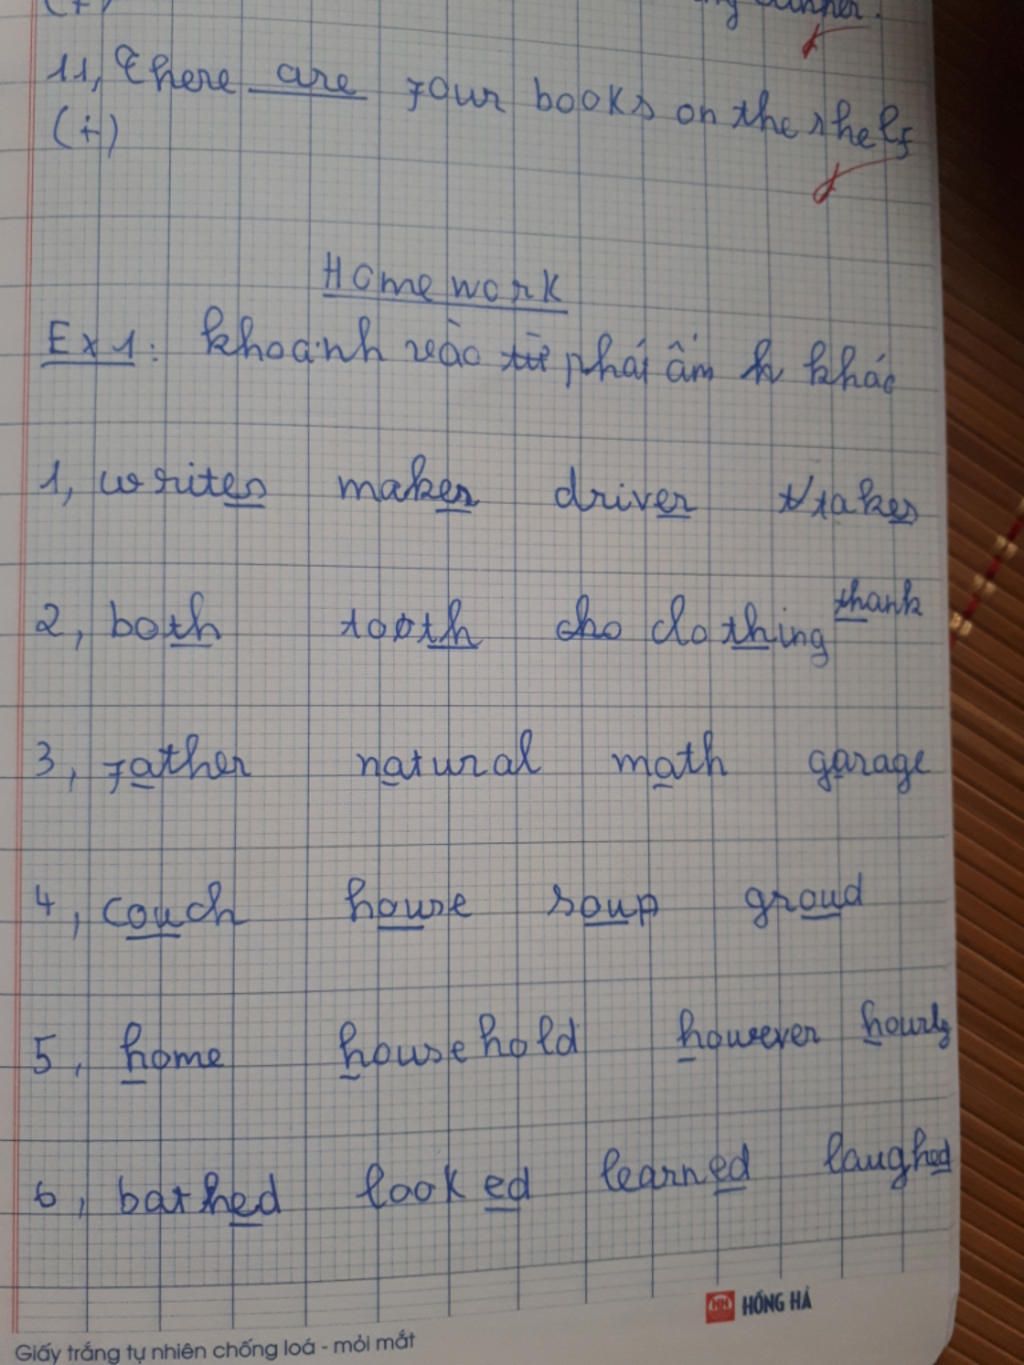 11, There are four books on the shelf
(+)
Homework
Ex 1: khoanh vào từ phát âm k khác
1, writes makes driver takes
2, both tooth cho clothing thank
3, father natural math garage
4, couch house soup groud
5, home household however hourly
6, bathed looked learned laughed
HỒNG HÀ
Giấy trắng tự nhiên chống loá - mỏi mắt